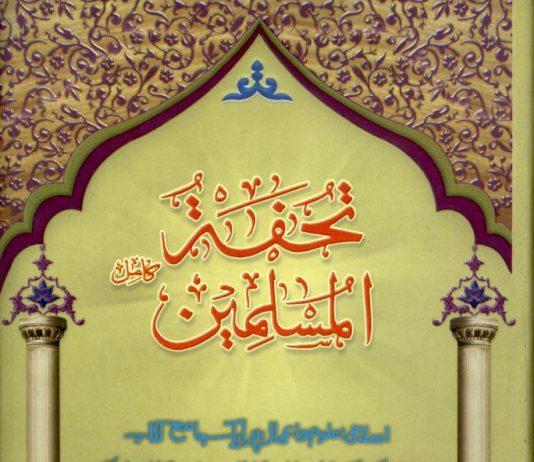 تحفۃ
المسلمین
کامل
اسلامی علوم و اعمال پر ایک جامع کتاب